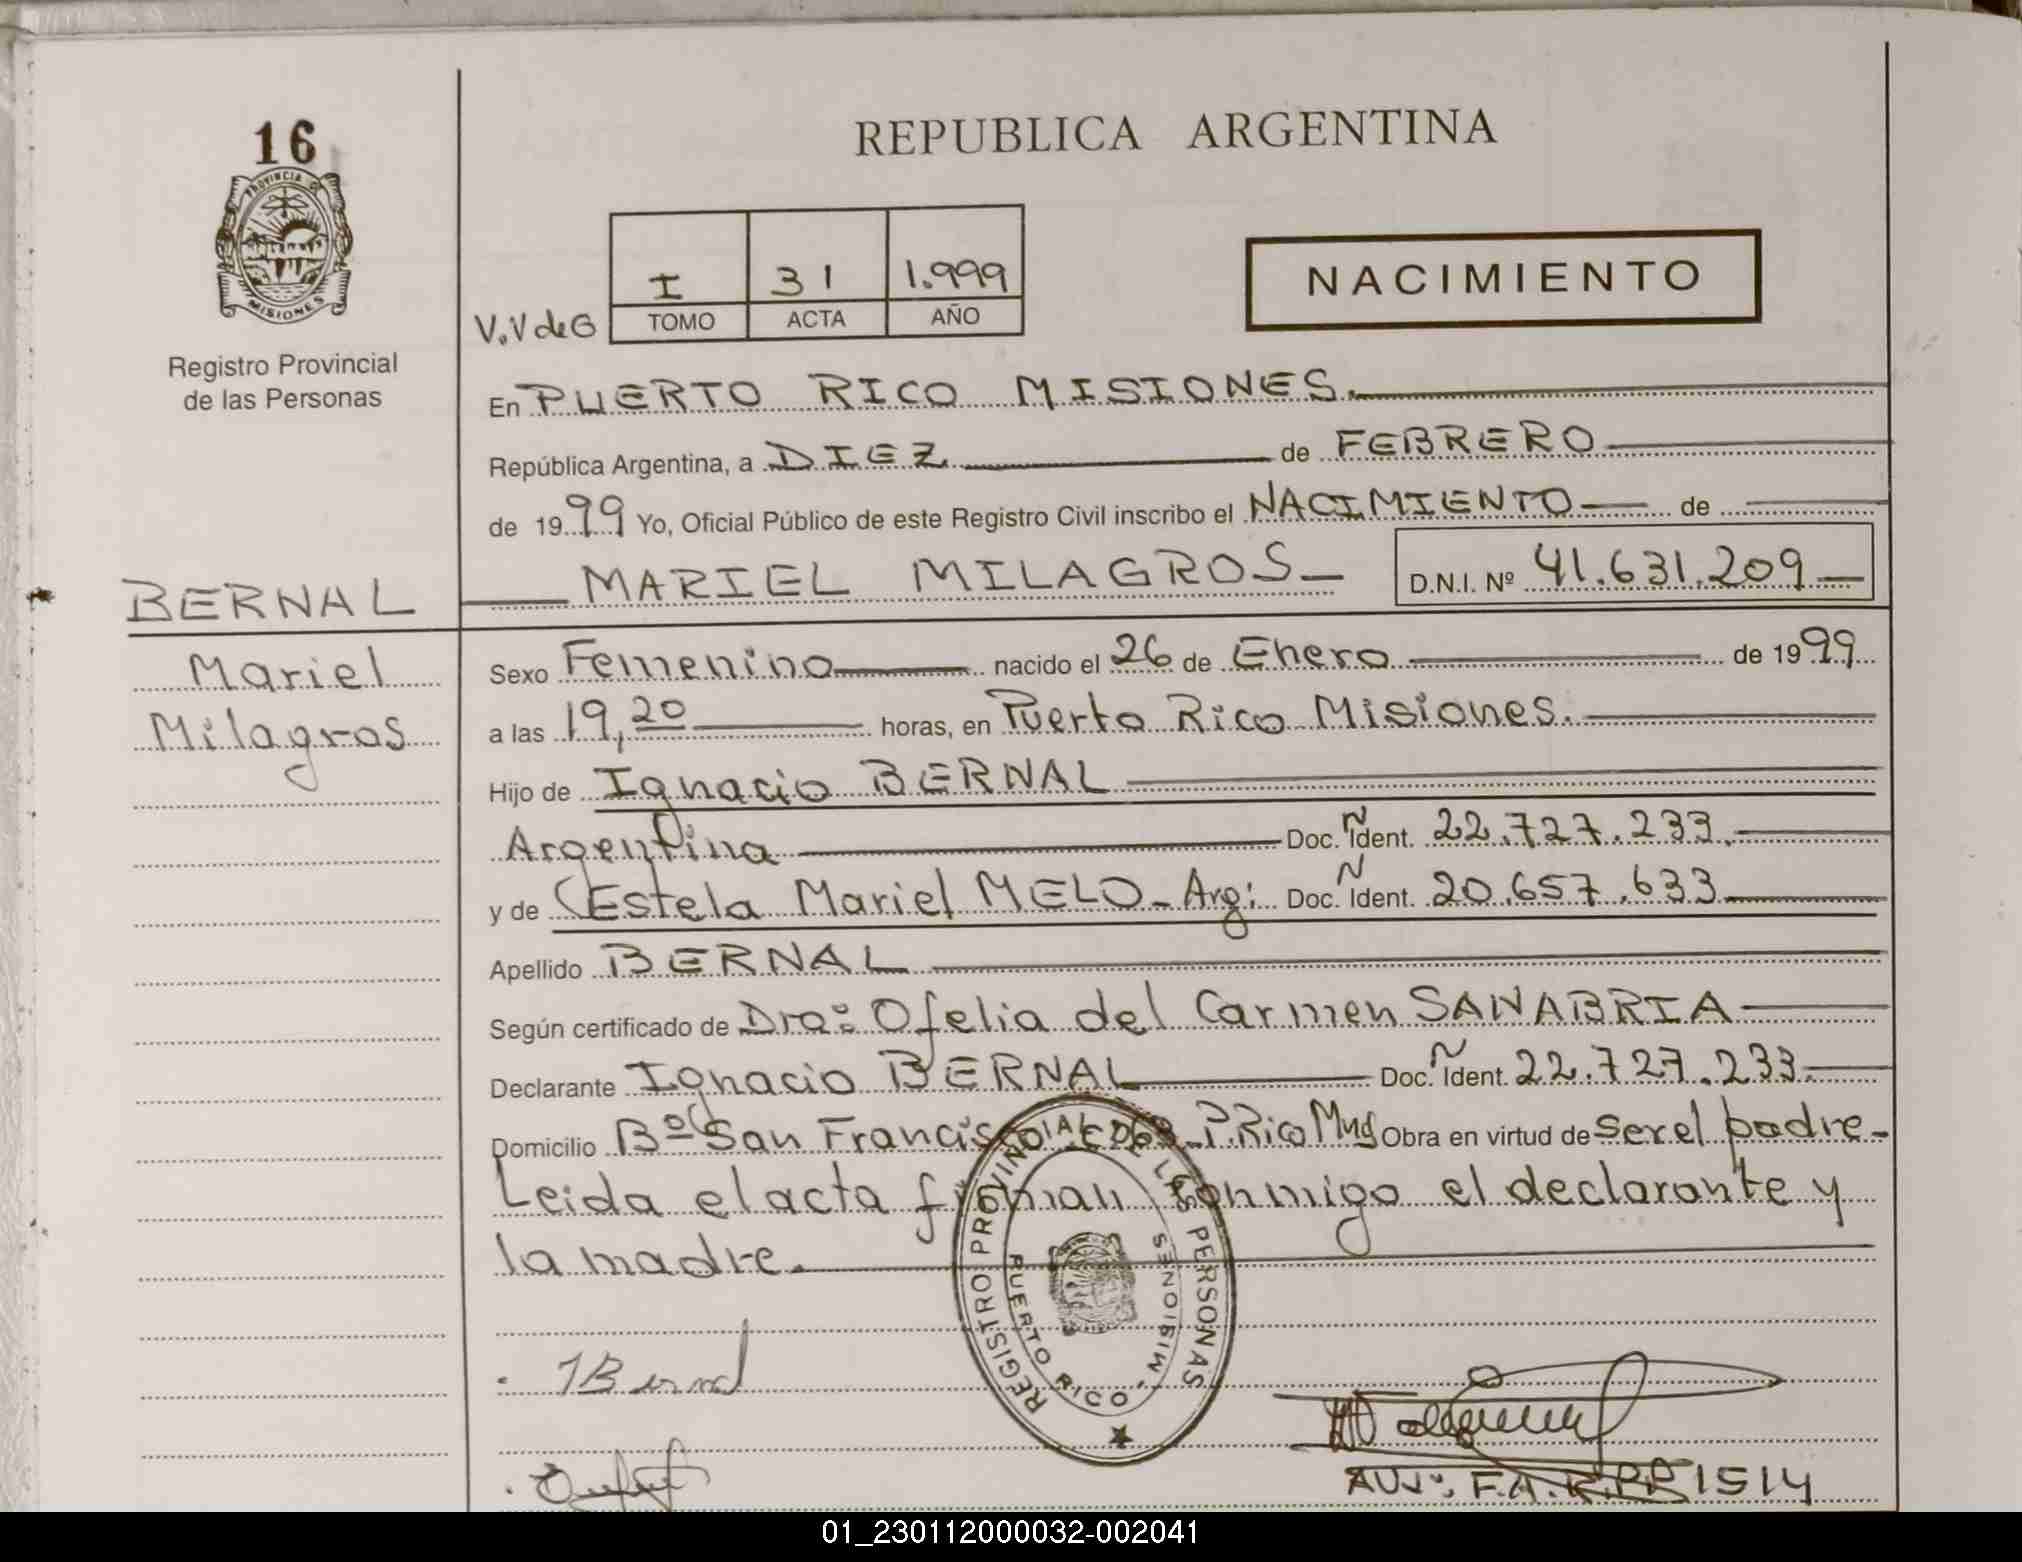 16
PROVINCIA D
MISIONES
Registro Provincial
de las Personas
REPUBLICA ARGENTINA
I 31 1.999
V.V de G TOMO ACTA AÑO
NACIMIENTO
En PUERTO RICO MISIONES.
República Argentina, a DIEZ de FEBRERO
de 1999 Yo, Oficial Público de este Registro Civil inscribo el NACIMIENTO de
MARIEL MILAGROS D.N.I. Nº 41.631.209
BERNAL
Mariel
Milagros
Sexo Femenino nacido el 26 de Enero de 1999
a las 19,20 horas, en Puerto Rico Misiones.
Hijo de Ignacio BERNAL
Argentina Doc. Ñ Ident. 22.727.233.
y de Estela Mariel MELO - Arg: Doc. Ñ Ident. 20.657.633
Apellido BERNAL
Según certificado de Dra: Ofelia del Carmen SANABRIA
Declarante Ignacio BERNAL Doc. Ñ Ident. 22.727.233.
Domicilio Bº San Francisco P.Rico Mns Obra en virtud de ser el padre -
Leida el acta firman conmigo el declarante y
la madre.
REGISTRO PROVINCIAL DE LAS PERSONAS
PUERTO RICO - MISIONES
AUJ: F.A. 1514
01_230112000032-002041